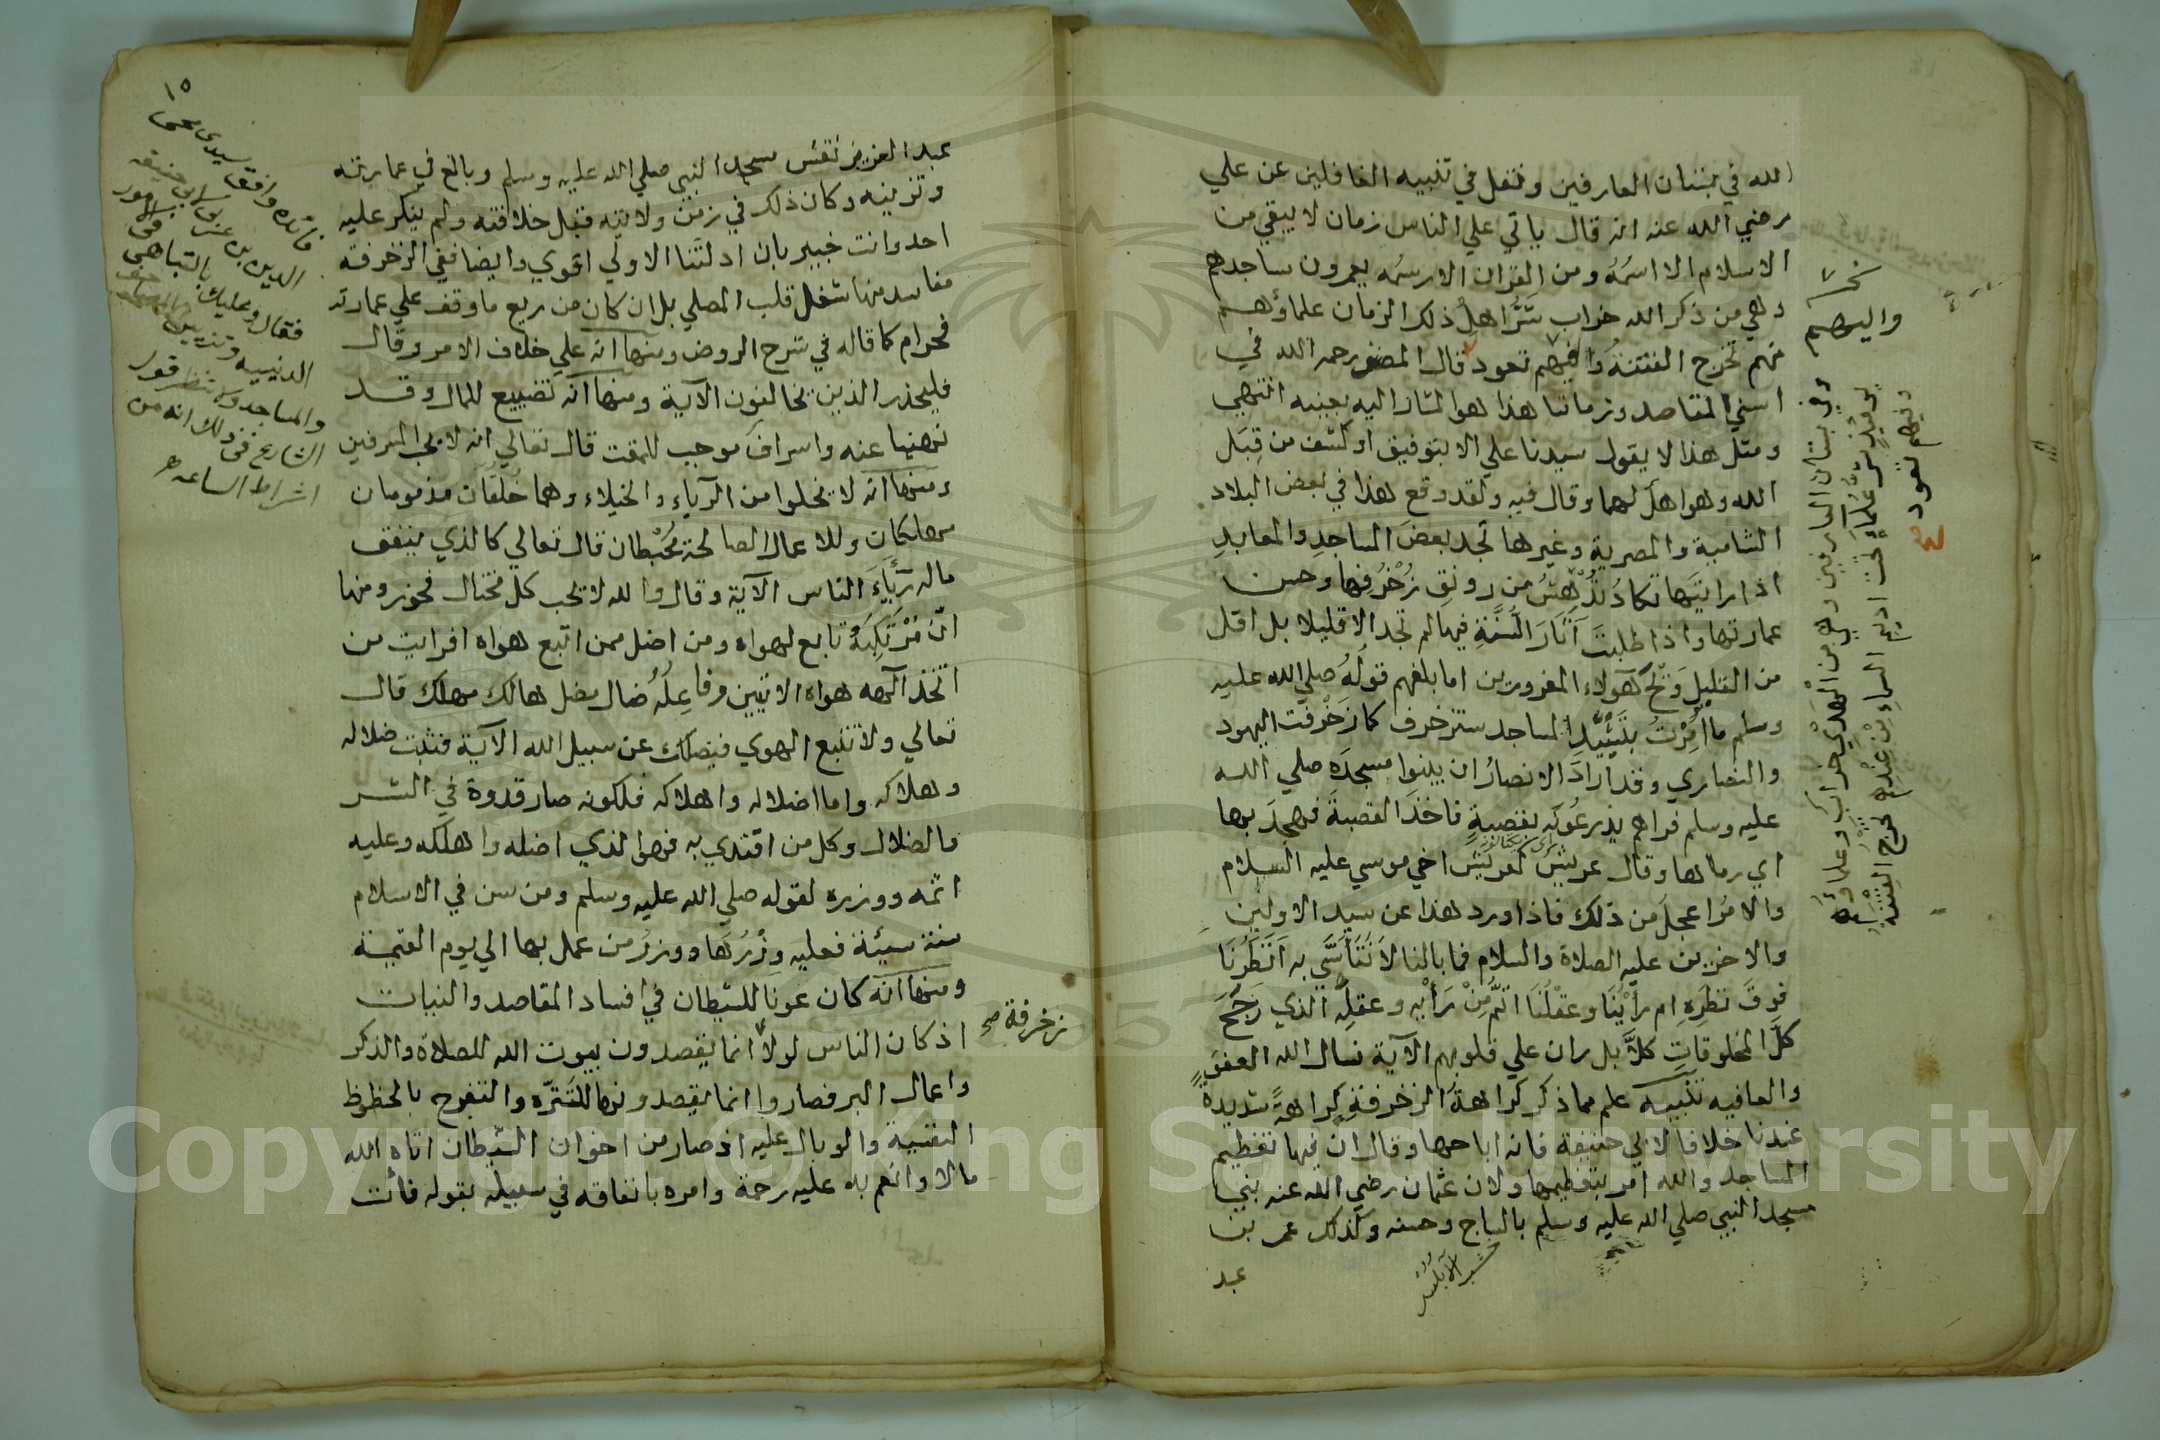 الله في بستان العارفين ونقل في تنبيه الغافلين عن علي
رضي الله عنه انه قال ياتي علي الناس زمان لا يبقي من
الاسلام الا اسمُهُ ومن القران الا رسمُه يعمرون مساجدهم
وهي من ذكر الله خراب شَرُّ اهلِ ذلك الزمان علماؤهم
منهم تخرج الفتنةُ وفيهم تعود قال المصنف رحمه الله في
اسني المقاصد وزماننا هذا هو المشار اليه بعينه انتهي
ومثل هذا لا يقول سيدنا علي الا بتوفيق او كشف من قِبَل
الله وهو اهلٌ لهما وقال فيه ولقد وقع هذا في بعض البلاد
الشامية والمصرية وغيرها تجد بعضَ المساجدِ والمعابدِ
اذا رايتَها تكادُ تُدْهِشُ من رونقِ زُخْرُفِها وحسن
عمارتها واذا طلبتَ آثارَ السُّنَّةِ فيها لم تجد الا قليلا بل اقل
من القليل وَيْحَ هَؤلاء المغرورين اما بلغهم قولُهُ صلي الله عليه
وسلم ما اُمِرْتُ بتَشْيِيْدِ المساجد ستزخرف كما زَخْرَفَت اليهود
والنصاري وقد ارادَ الانصارُ ان يبنوا مسجدَه صلي الله
عليه وسلم فراهم يذرعُونَه بقصبةٍ فاخذَ القصبةَ فهجدَ بها
اي رمالها وقال عريشٌ كعريش اخي موسي عليه السلام
والامرُ اعجلُ من ذلك فاذا ورد هذا عن سيد الاولينِ
والاخرين عليه الصلاة والسلام فما بالنا لا نَتَأَسَّي به اَنَظَرُنَا
فوقَ نظرِهِ ام رأيُنَا وعقْلُنَا اتَمُّ مِنْ رَأيْهِ وعقلِهِ الذي رَجَحَ
كلَّ المخلوقاتِ كلاَّ بل ران علي قلوبهم الآية نسال الله العفوَ
والعافيه تنبيه علم مما ذكر كراهةُ الزخرفةِ كراهةً شديدةً
عندنا خلافا لابي حنيفة فانه اباحها وقال ان فيها تعظيم
المساجد والله امر بتعظيمها ولان عثمان رضي الله عنه بني
مسجد النبي صلي الله عليه وسلم بالساج وحسنه وكذلك عمر بن
عبد
واليهم
وفي بستان العارفين وهي من الهدي خراب وعلماؤهم
يومئذٍ شرُّ عُلماءٍ تحت اديم السماءِ مِنْ عِنْدِهِم تخرج الفتنة
وفيهم تعود
١٥
عبد العزيز نقش مسجد النبي صلي الله عليه وسلم وبالغ في عمارته
وتزيينه وكان ذلك في زمن ولايته قبل خلافته ولم ينكر عليه
احد وانت خبير بان ادلتَنا الاولي اقوي وايضا ففي الزخرفة
مفاسد منها شغل قلب المصلي بل ان كان من ريع ما وقف علي عمارته
فحرام كما قاله في شرح الروض ومنها انه علي خلاف الامر وقال
فليحذر الذين يخالفون الآية ومنها انه تضييع للمال وقد
نهينا عنه واسراف موجب للمقت قال تعالي انه لا يحب المسرفين
ومنها انه لا يخلوا من الرياء والخيلاء وهما خُلُقَان مذمومان
مهلكان وللاعمال الصالحة مُحْبِطان قال تعالي كالذي ينفق
ماله رِئَاءَ الناس الآية وقال والله لا يحب كل مختال فخور ومنها
انّ مُرْتَكِبَهُ تابع لهواه ومن اضل ممن اتبع هواه افرايت من
اتخذ الهه هواه الايتين وفاعِلُهُ ضال مضل هالك مهلك قال
تعالي ولا تتبع الهوي فيضلك عن سبيل الله الآية فثبت ضلاله
وهلاكه واما اضلاله واهلاكه فلكونه صار قدوة في الشر
والضلال وكل من اقتدي به فهو الذي اضله واهلكه وعليه
اثمه ووزره لقوله صلي الله عليه وسلم ومن سن في الاسلام
سنة سيئة فعليه وِزْرُهَا ووزرُ من عمل بها الي يوم القيمة
ومنها انه كان عَونا للشيطان في افساد المقاصد والنيات
اذ كان الناس لولا انما يقصدون بيوت الله للصلاة والذكر
زخرفة صح
واعمال البر فصاروا انما يقصدونها للتنزّه والتفرح بالحظوظ
النفسية والوبال عليه اذ صار من اخوان الشيطان اتاه الله
مالا وانعم به عليه رحمة وامره بانفاقه في سبيله بقوله فأت
فائده وافق سيدي محي
الدين بن عربي ابي حنيفه
فقال وعليك بالتباهي في الامور
الدينيه وتزيين المصاحف
والمساجد ولا تنظر قول
الشارع في ذلك انه من
اشراط الساعه